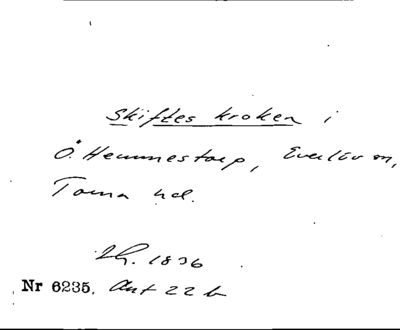 Skiftes kroken i
Ö. Hemmestorp, Everlöv sn,
Torna hd.
Lh. 1836
Nr 6235. Akt 22 b